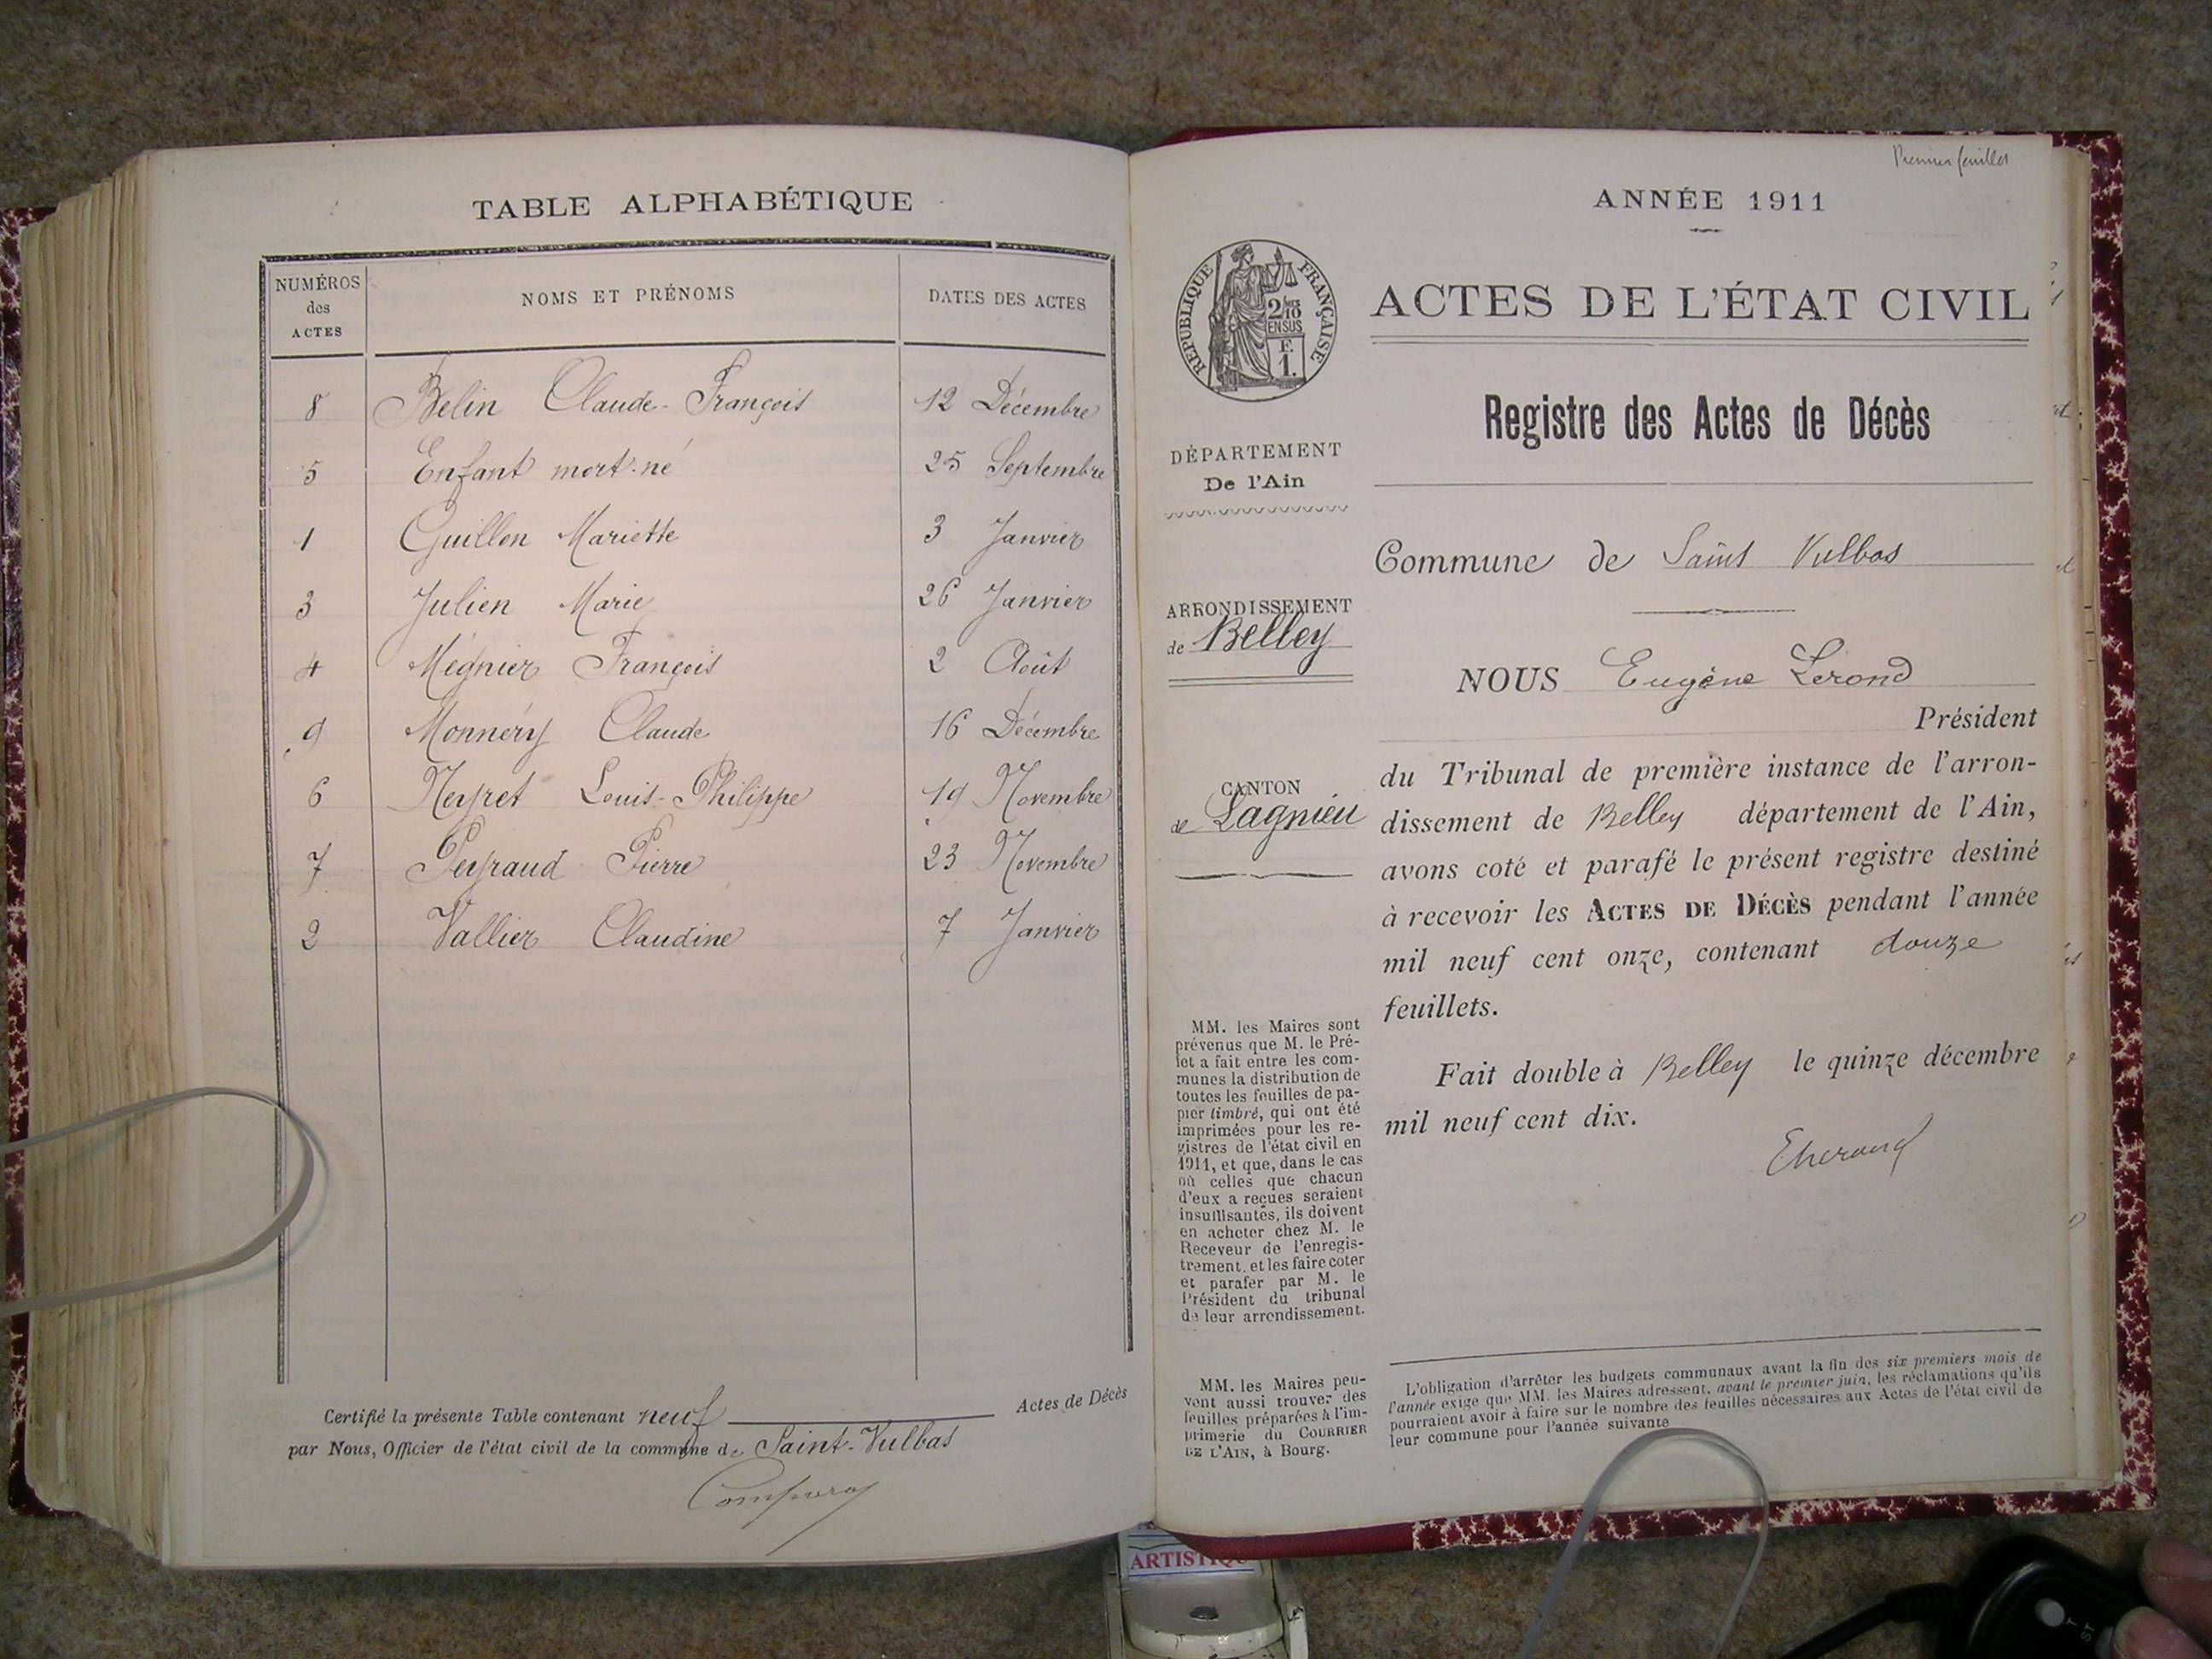 TABLE ALPHABÉTIQUE
NUMÉROS des ACTES NOMS ET PRÉNOMS DATES DES ACTES
8 Belin Claude-François 12 Décembre
5 Enfant mort-né 25 Septembre
1 Guillon Mariette 3 Janvier
3 Julien Marie 26 Janvier
4 Mégnier François 2 Août
9 Monnéry Claude 16 Décembre
6 Neyret Louis-Philippe 19 Novembre
7 Peyraud Pierre 23 Novembre
2 Vallier Claudine 7 Janvier
Certifié la présente Table contenant neuf Actes de Décès
par Nous, Officier de l'état civil de la commune de Saint-Vulbas
Premier feuillet
ANNÉE 1911
RÉPUBLIQUE FRANÇAISE
2/10
EN SUS
F.
1.
ACTES DE L'ÉTAT CIVIL
Registre des Actes de Décès
DÉPARTEMENT
De l'Ain
Commune de Saint Vulbas
ARRONDISSEMENT
de Belley
NOUS Eugène Lerond
Président
CANTON
de Lagnieu
du Tribunal de première instance de l'arron-
dissement de Belley département de l'Ain,
avons coté et parafé le présent registre destiné
à recevoir les ACTES DE DÉCÈS pendant l'année
mil neuf cent onze, contenant douze
feuillets.
Fait double à Belley le quinze décembre
mil neuf cent dix.
MM. les Maires sont
prévenus que M. le Pré-
fet a fait entre les com-
munes la distribution de
toutes les feuilles de pa-
pier timbré, qui ont été
imprimées pour les re-
gistres de l'état civil en
1911, et que, dans le cas
où celles que chacun
d'eux a reçues seraient
insuffisantes, ils doivent
en acheter chez M. le
Receveur de l'enregis-
trement, et les faire coter
et parafer par M. le
Président du tribunal
de leur arrondissement.
MM. les Maires peu-
vent aussi trouver des
feuilles préparées à l'im-
primerie du COURRIER
DE L'AIN, à Bourg.
L'obligation d'arrêter les budgets communaux avant la fin des six premiers mois de
l'année exige que MM. les Maires adressent, avant le premier juin, les réclamations qu'ils
pourraient avoir à faire sur le nombre des feuilles nécessaires aux Actes de l'état civil de
leur commune pour l'année suivante